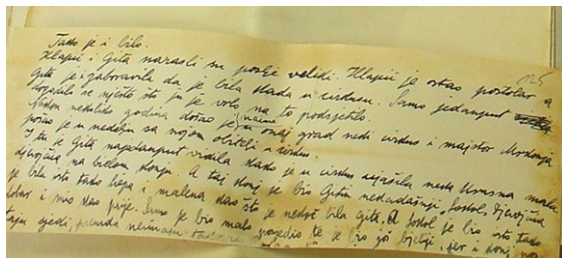 Tako je i bilo.
Hlapić i Gita narasli su poslje veliki. Hlapić je ostao postolar a
Gita je i zaboravila da je bila kada u cirkusu. Samo jedamput
dogodilo se nješto što ju je vrlo na to podsjetilo.
Nakon nekoliko godina došao je naime u onaj grad neki cirkus i majstor Mrkonja
pošao je u nedelju sa svojom obitelji u cirkus.
I tu je Gita najedamput vidila kako je u cirkus ujašila neka krasna mala
djevojčica na bielom konju. A taj konj je bio Gitin nekadašnji „Sokol". Djevojčica
je bila isto tako liepa i malena kao što je nekoč bila Gita. A Sokol je bio isto tako
dobar i mio kao prije. Samo je bio malo posjedio te je bio još bjelji, jer i konji
kaju sjedi, premda neimaju